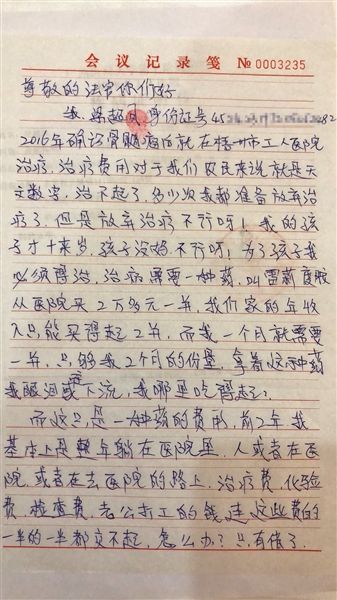 会议记录笺 № 0003235
尊敬的法官你们好
我，梁超凤，身份证号45
2016年确诊骨髓瘤后就在梧州市工人医院
治疗，治疗费用对于我们农民来说就是天
文数字，治不起了，多少次我都准备放弃治
疗了，但是放弃治疗不行呀！我的孩
子才十来岁，孩子没妈不行呀，为了孩子我
必须得治，治病需要一种药，叫雷药度胺
从医院买2万多元一并，我们家的年收
入只能买得起2并，而我一个月就需要
一并，只够我2个月的份量，拿着这种药
我眼泪或下流，我哪里吃得起？
而这只是一种药的费用，前2年我
基本上是整年躺在医院里，人或者在医
院，或者在去医院的路上，治疗费，化验
费，检查费，老公打工的钱连这些费的
一半的一半都交不起，怎么办？只有借了